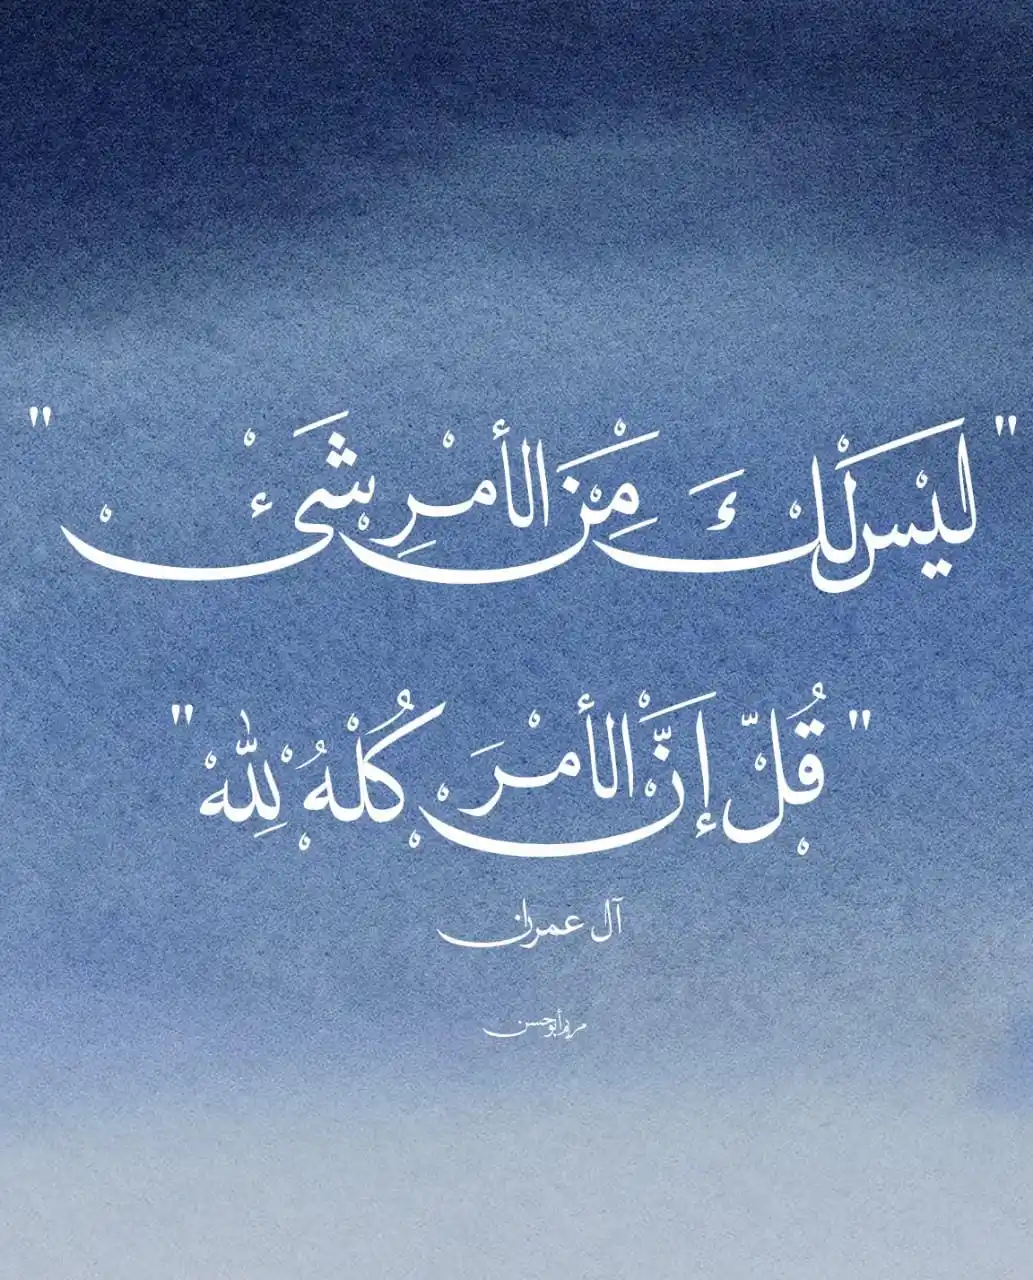 "لَيْسَ لَكَ مِنَ الأمْرِ شَيْءٌ"
"قُلْ إِنَّ الأمْرَ كُلَّهُ لِلّٰهِ"
آل عمران
مريم أبو حسن